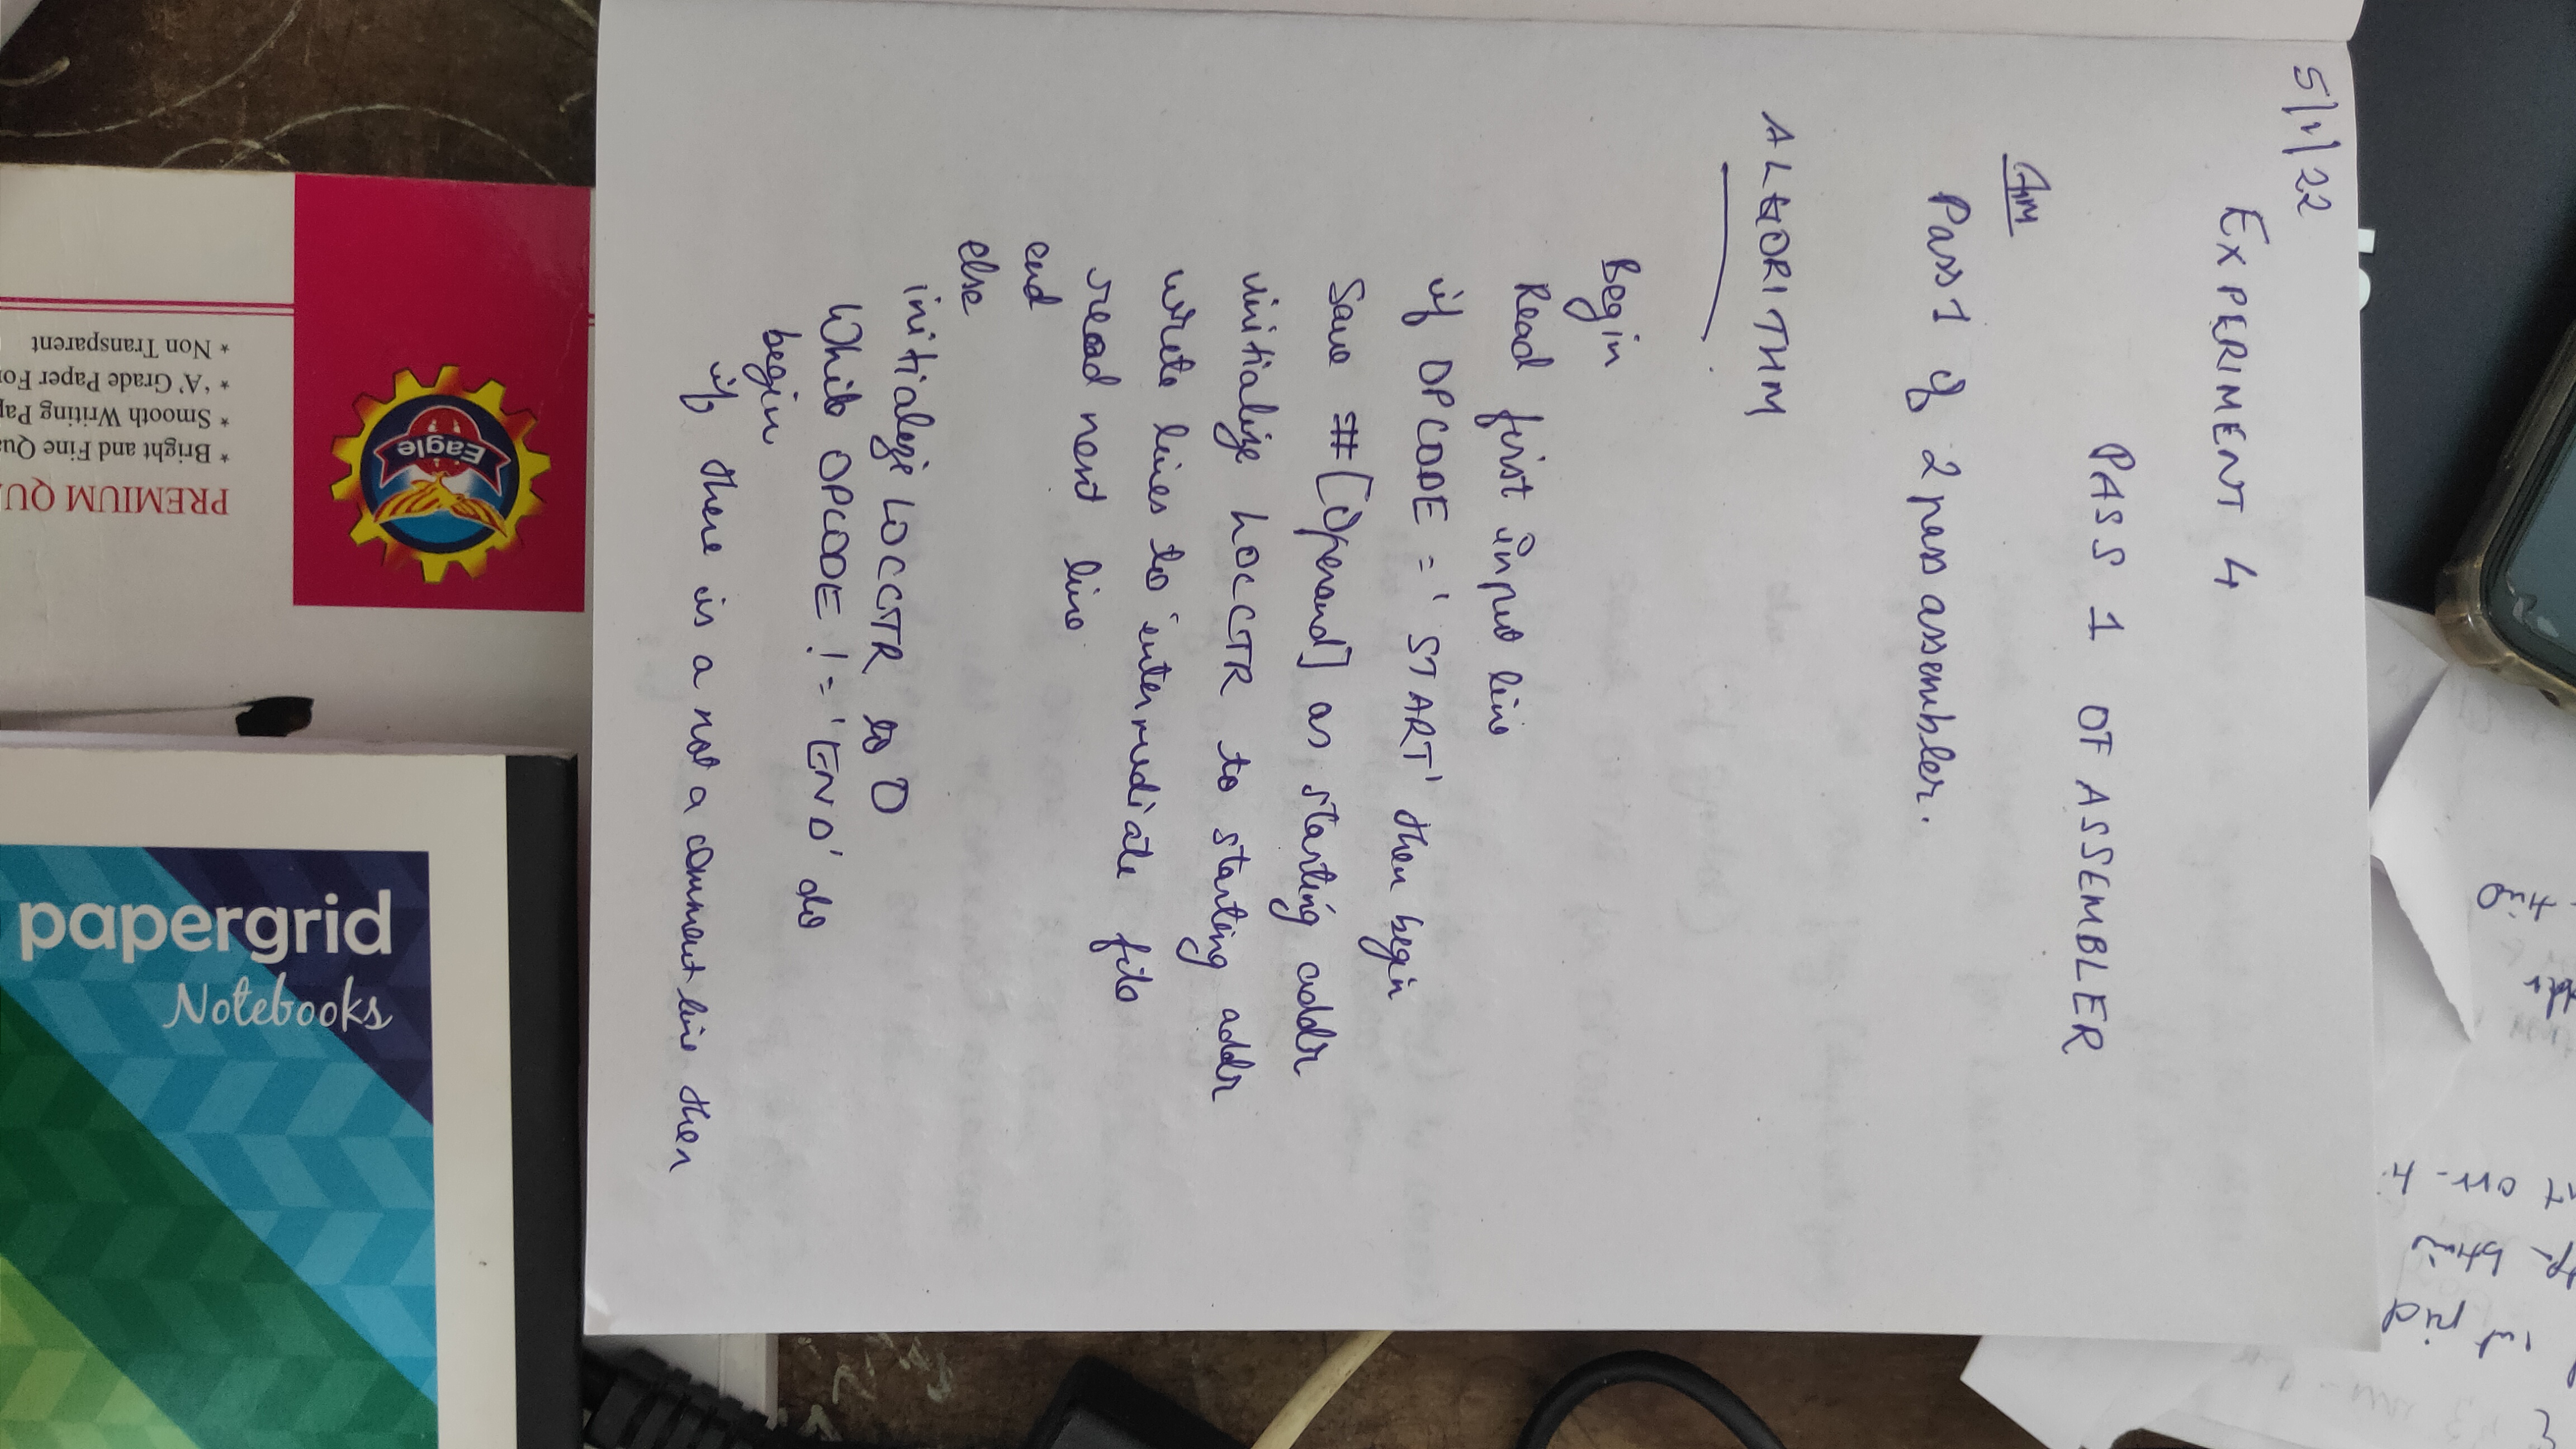 5/1/22
EXPERIMENT 4
PASS 1 OF ASSEMBLER
Aim
Pass 1 of 2 pass assembler.
ALGORITHM
Begin
Read first input line
if OPCODE = 'START' then begin
Save #[Operand] as starting addr
initialize LOCCTR to starting addr
write lines to intermediate file
read next line
end
else
initialize LOCCTR to 0
While OPCODE != 'END' do
begin
if there is a not a comment line then
PREMIUM
* Bright and Fine
* Smooth Writing
* 'A' Grade Paper
* Non Transparent
Eagle
papergrid
Notebooks